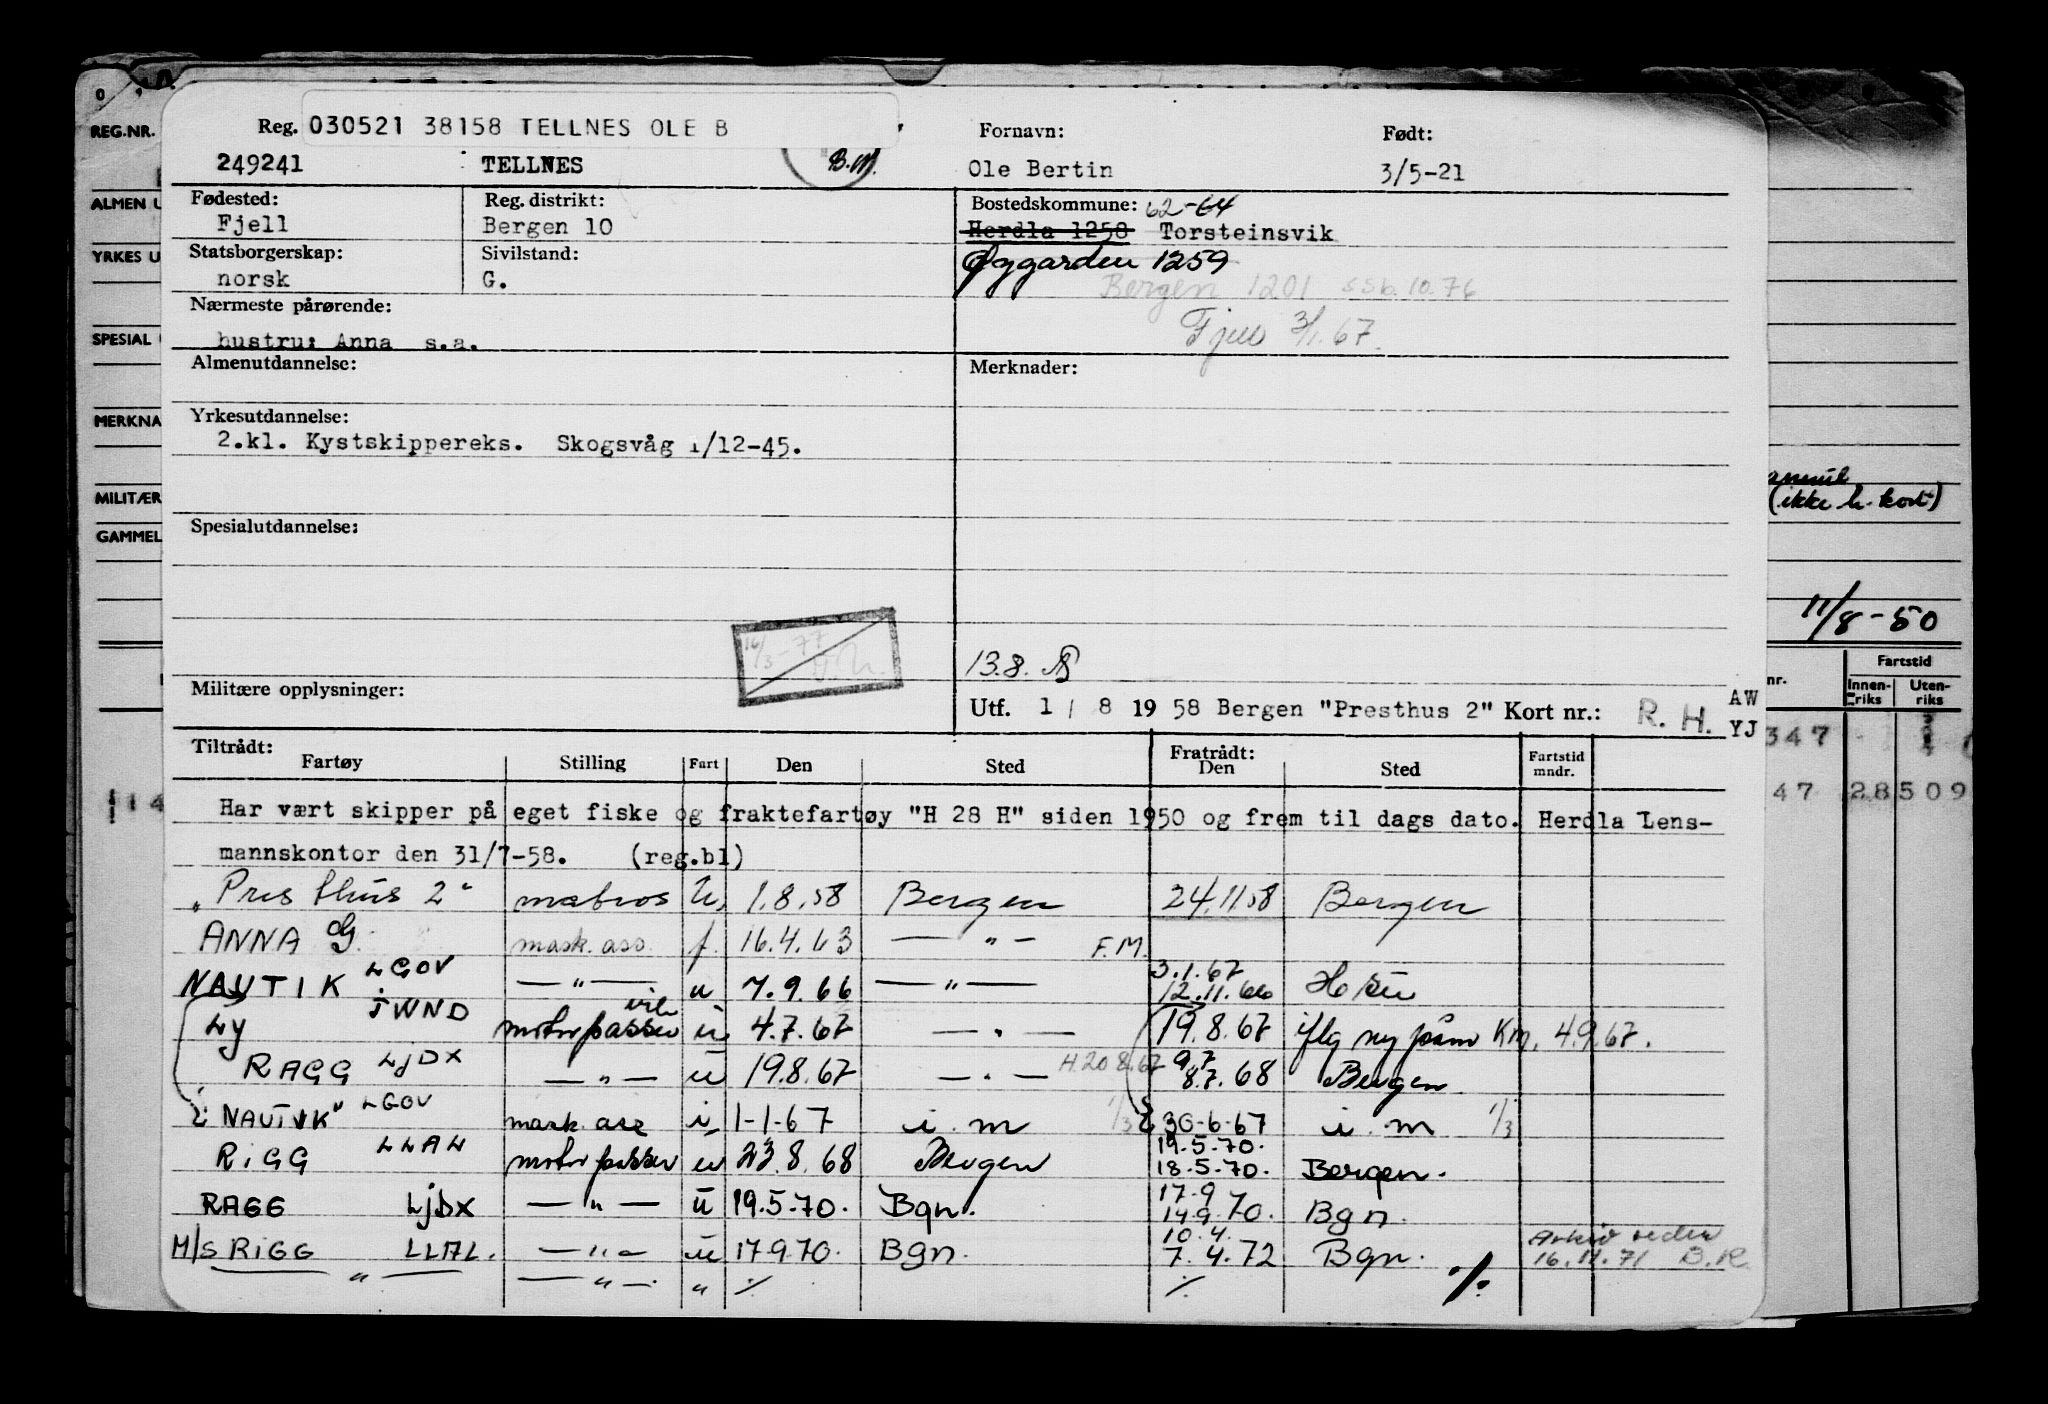 Reg. 030521 38158 TELLNES OLE B
Fornavn: Født:
249241 TELLNES B.M. Ole Bertin 3/5-21
Fødested: Reg. distrikt: Bostedskommune: 62-64
Fjell Bergen 10 Herdla 1258 Torsteinsvik
Statsborgerskap: Sivilstand: Øygarden 1259
norsk G. Bergen 1201 SSb. 10.76
Nærmeste pårørende: Fjell 3/1.67.
hustru: Anna s.a.
Almenutdannelse: Merknader:
Yrkesutdannelse:
2.kl. Kystskippereks. Skogsvåg 1/12-45.
Spesialutdannelse:
16/3-77
13.8.
Militære opplysninger:
Utf. 1 / 8 19 58 Bergen "Presthus 2" Kort nr.: R. H. AW YJ
Tiltrådt: Fratrådt:
Fartøy Stilling Fart Den Sted Den Sted Fartstid mndr.
Har vært skipper på eget fiske og fraktefartøy "H 28 H" siden 1950 og frem til dags dato. Herdla Lens-
mannskontor den 31/7-58. (reg.bl)
"Presthus 2" matros U, 1.8.58 Bergen 24.11 58 Bergen
ANNA G. mask. ass. f. 16.4.63 — " — F.M.
3.1.67
NAUTIK LGOV — " — u 7.9.66 — " — 12.11.66
Ly JWND motorpasser u 4.7.67 — " — 19.8.67 iflg ny påm KM. 4.9.67.
RAGG LJDX — " — u 19.8.67 — " — H.20 8.67 9.7 8.7.68 Bergen
"NAUTIK" LGOV mask. ass i 1-1-67 i . m 1/3 30-6-67 i . m 1/3
19.5.70.
RIGG LLAL motorpasser u 23.8.68 Bergen 18.5.70. Bergen.
17.9
RAGG LJDX — " — u 19.5.70. Bgn. 14.9.70. Bgn.
10.4.
M/S RIGG LLAL. — " — u 17.9.70. Bgn. 7.4.72 Bgn. 16.11.71 B.R.
" — " — . " ./. ./. ./.
REG.NR.
ALMEN U
YRKES U
SPESIAL
MERKNA
MILITÆR
GAMMEL
114
(ikke h. kort)
11/8-50
nr. Fartstid
Innen-riks Uten-riks
347
47 28 509